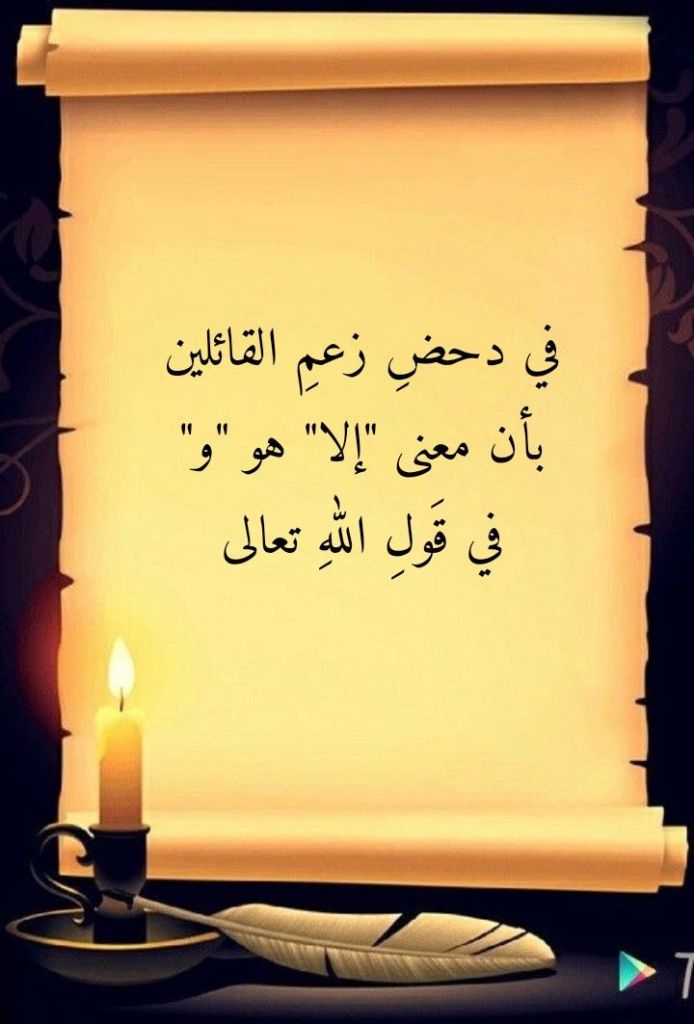 في دحضِ زعمِ القائلين
بأن معنى "إلا" هو "و"
في قَولِ اللهِ تعالى